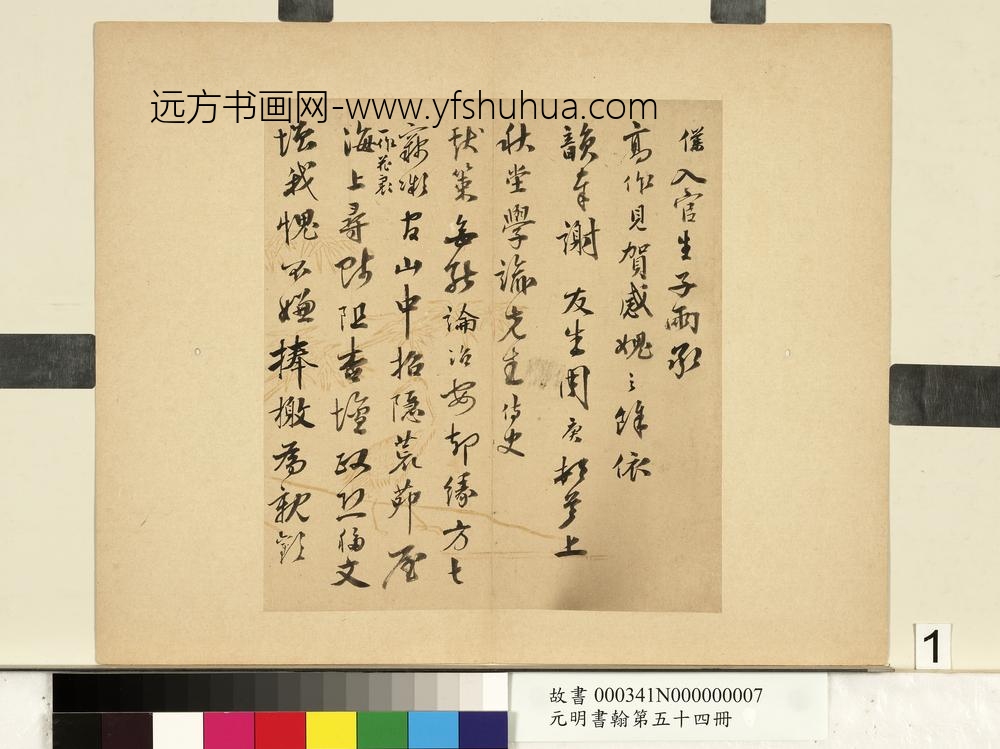 远方书画网-www.yfshuhua.com
僕入官生子兩承
高作見賀感媿〻餘依
韻奉謝 友生周庚頓首上
秋堂學諭先生侍史
獻策無能論治安却緣方七
竊微官山中招隱荒茆屋
海上尋 阻杏壇政 文
我愧不嫌捧檄為親歡
1
故書 000341N000000007
元明書翰第五十四冊